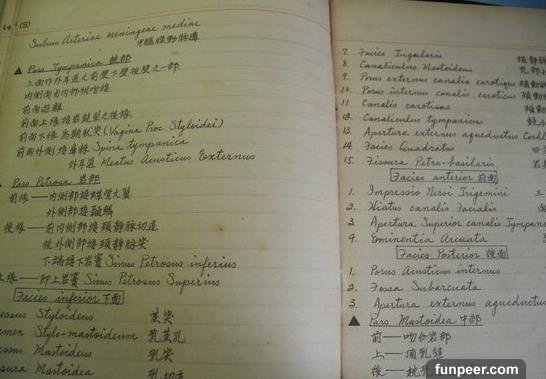 Sulcus Arteriae meningeae mediae
中腦膜動脈溝
▲ Pars Tympanica 鼓部
上面作外耳道之前壁下壁後壁之一部
前面遊離
前面上緣
前面下緣為鞘䏰突(Vagina Proc. Styloidei)
前面外側 Spina tympanica
外耳道 Meatus Acusticus Externus
▲ Pars Petrosa 岩部
前緣——內側部接蝶骨大翼
外側部接顳鱗
後緣——前內側部接頸靜脈切迹
後外側部接頸靜脈突
下端接下岩竇 Sinus Petrosus inferius
上緣——即上岩竇 Sinus Petrosus Superius
Facies inferior 下面
Styloideus 莖突
Stylo-mastoideum 乳莖孔
Mastoideus 乳突
Mastoidea 乳切迹
7. Facies Jugularis
8. Canaliculus Mastoideus
9. Porus externus canalis carotiqus
10. Porus internus canalis caroticus
11. Canalis caroticus
12. Canaliculus tympanicus
13. Apertura externus aqueductus
14. Facies Quadratus
15. Fissura Petro-basilaris
Facies anterior 前面
1. Impressio Nervi Trigemini
2. Hiatus canalis Facialis
3. Apertura Superior canalis
4. Eminentia Arcuata
Facies Posterior 後面
1. Porus Acusticus internus
2. Fossa Subarcuata
3. Apertura externus aqueductus
▲ Pars Mastoidea 乳部
前——吻合岩部
上——頂乳縫
後——枕乳
funpeer.com